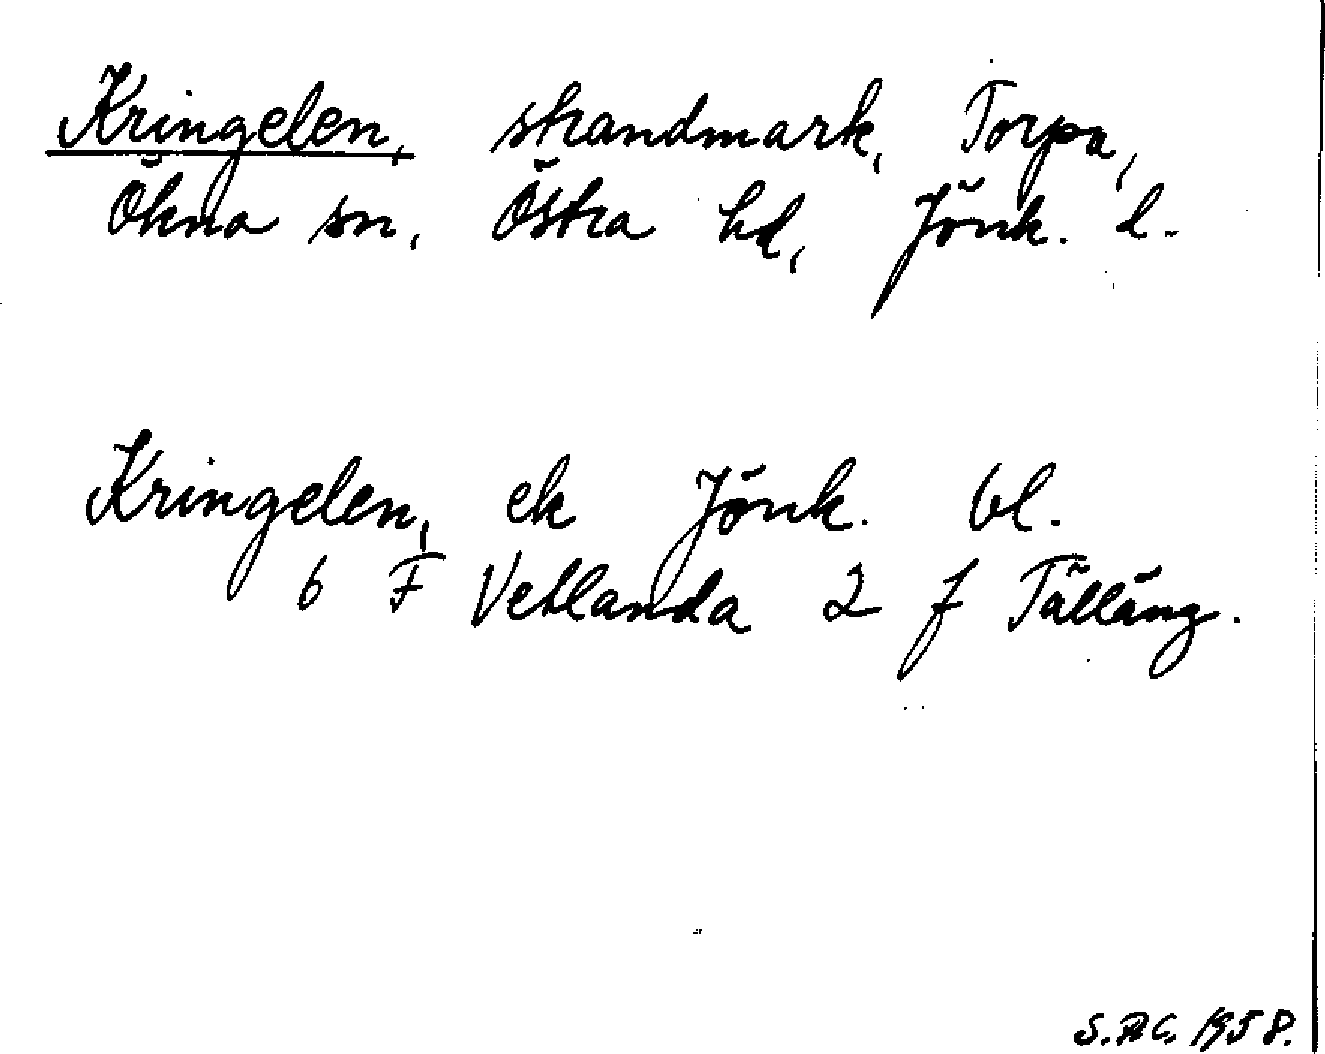 Kringelen, strandmark, Torpa,
Ökna sn, Östra hd, Jönk. l.
Kringelen, ek Jönk. bl.
6 F Vetlanda 2 f Tälläng.
1958.